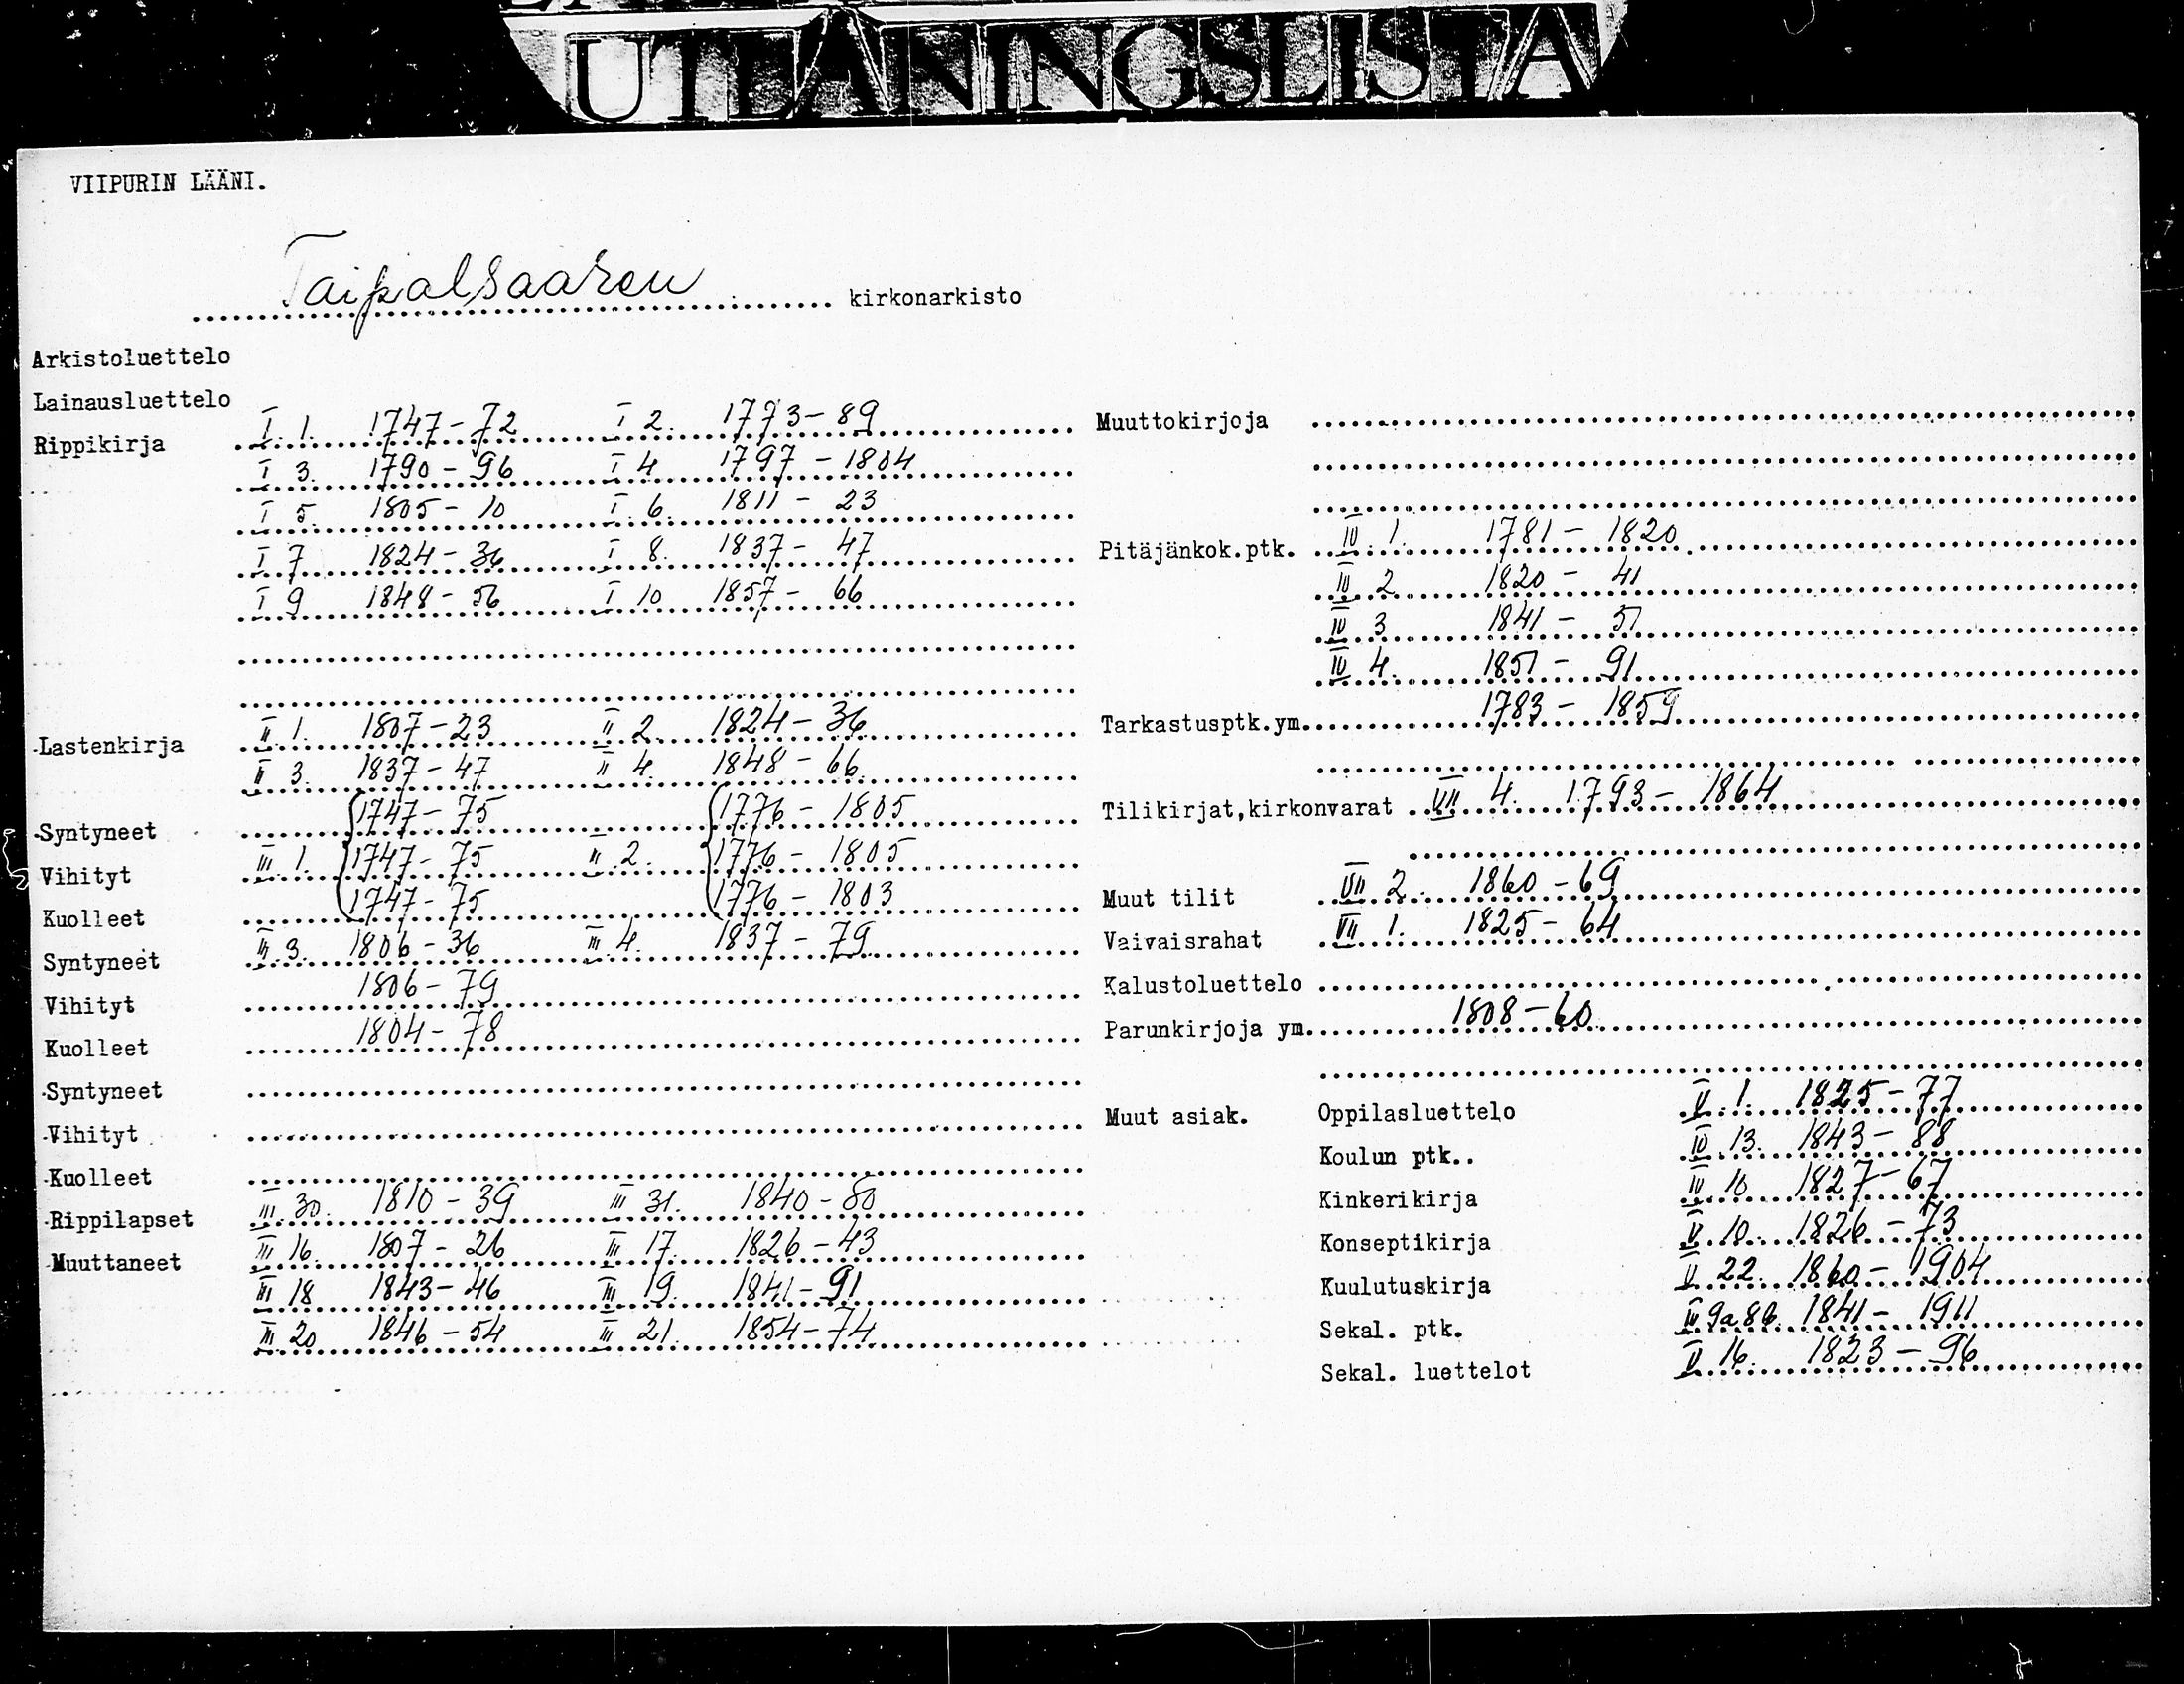 UTLÅNINGSLISTA
VIIPURIN LÄÄNI.
Taipalsaaren kirkonarkisto
Arkistoluettelo
Lainausluettelo
Rippikirja I. 1. 1747-72 I 2. 1773-89
I 3. 1790-96 I 4 1797-1804
I 5. 1805-10 I. 6. 1811-23
I 7 1824-36 I 8. 1837-47
I 9 1848-56 I 10 1857-66
Lastenkirja II. 1. 1807-23 II 2. 1824-36
II 3. 1837-47 II 4. 1848-66
Syntyneet 1747-75 1776-1805
Vihityt III. 1. 1747-75 II. 2. 1776-1805
Kuolleet 1747-75 1776-1803
Syntyneet III. 3. 1806-36 III 4. 1837-79
Vihityt 1806-79
Kuolleet 1804-78
Syntyneet
Vihityt
Kuolleet
Rippilapset III. 30. 1810-39 III 31. 1840-80
Muuttaneet III 16. 1807-26 III 17. 1826-43
III 18 1843-46 III 19. 1841-91
III 20 1846-54 III 21. 1854-74
Muuttokirjoja
Pitäjänkok.ptk. IV. 1. 1781-1820
IV 2 1820-41
IV 3 1841-51
IV 4. 1851-91
Tarkastusptk.ym. 1783-1859
Tilikirjat,kirkonvarat VII 4. 1793-1864
Muut tilit VII 2. 1860-69
Vaivaisrahat VII 1. 1825-64
Kalustoluettelo
Parunkirjoja ym. 1808-60
Muut asiak. Oppilasluettelo V. 1. 1825-77
Koulun ptk.. IV. 13. 1843-88
Kinkerikirja IV. 10 1827-67
Konseptikirja V. 10. 1826-73
Kuulutuskirja V. 22. 1860-1904
Sekal. ptk. IV 9a8b. 1841-1911
Sekal. luettelot V 16. 1823-96